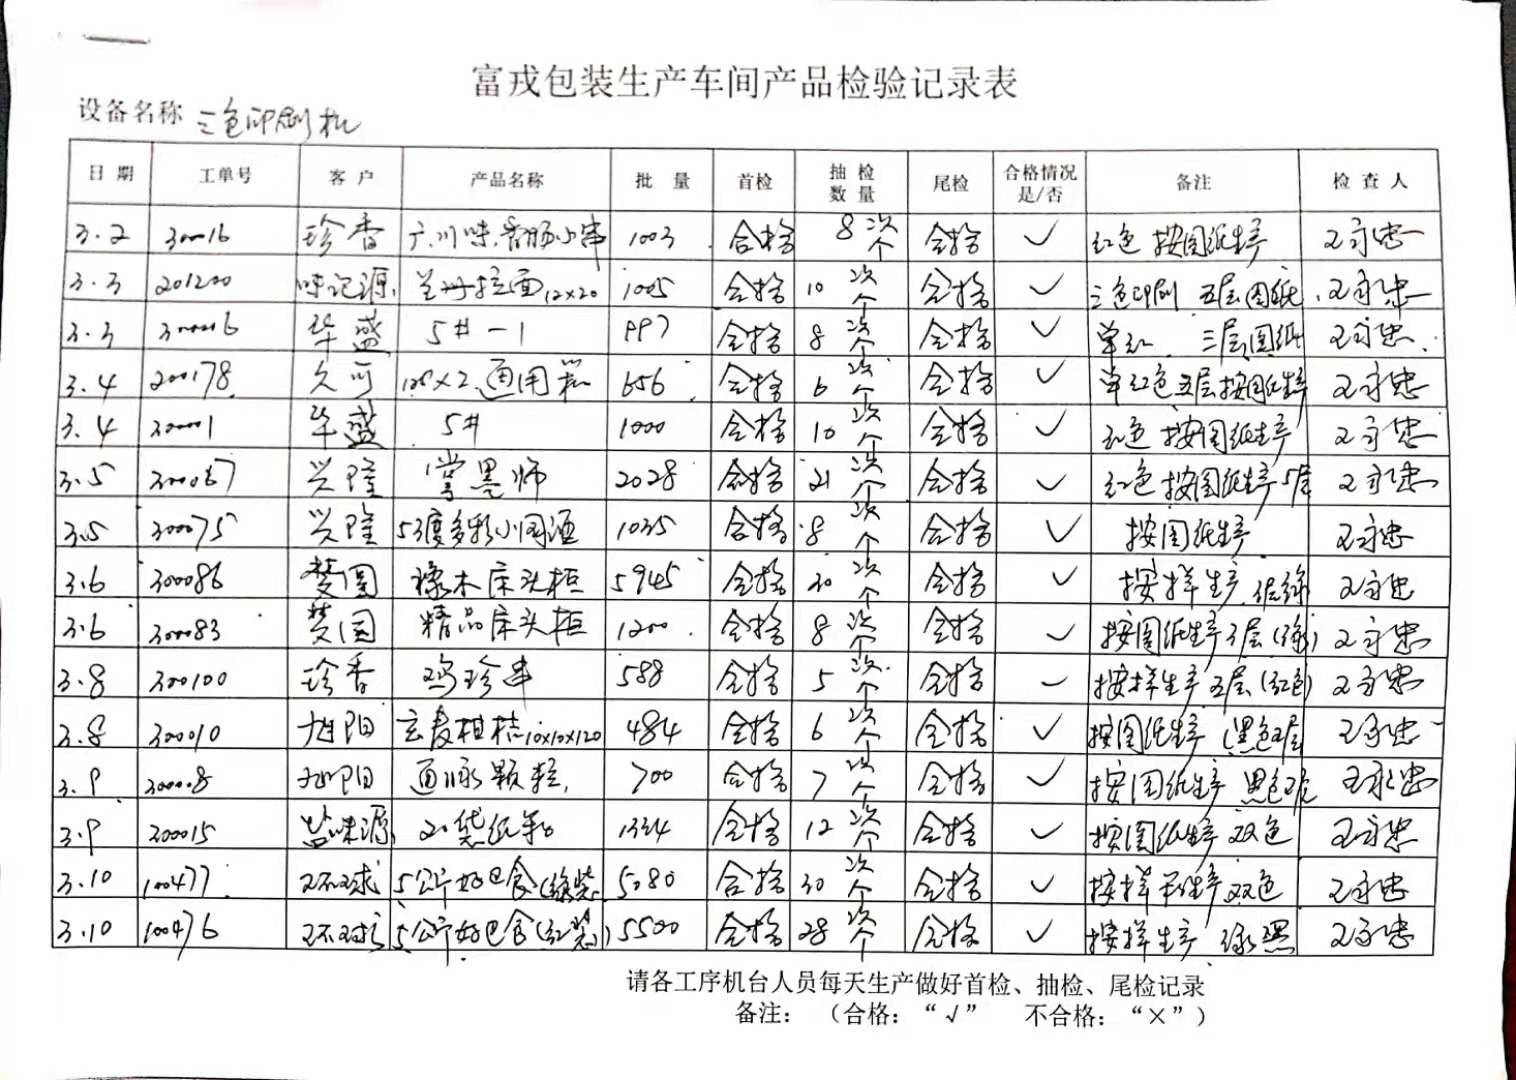 富戎包装生产车间产品检验记录表
设备名称 三色印刷机
日期 工单号 客户 产品名称 批量 首检 抽检数量 尾检 合格情况 是/否 备注 检查人
3.2 30016 珍香 广川味香肠小串 1003 合格 8次个 合格 ✓ 红色 按图纸生产 王永忠
3.3 201200 味记源 兰州拉面12×20 1005 合格 10次个 合格 ✓ 三色印刷 五层图纸 王永忠
3.3 300016 华盛 5#-1 997 合格 8次个 合格 ✓ 单红 三层图纸 王永忠
3.4 200178 久可 ×2通用 656 合格 6次个 合格 ✓ 单红色五层按图纸生产 王永忠
3.4 30001 华盛 5# 1000 合格 10次个 合格 ✓ 红色 按图纸生产 王永忠
3.5 300067 兴隆 掌墨师 2028 合格 21次个 合格 ✓ 红色按图纸生产5层 王永忠
3.5 300075 兴隆 53度多彩小国酒 1035 合格 8次个 合格 ✓ 按图纸生产 王永忠
3.6 300086 梦园 橡木床头柜 5945 合格 30次个 合格 ✓ 按样生产 王永忠
3.6 300083 梦园 精品床头柜 1200 合格 8次个 合格 ✓ 按图纸生产3层(绿) 王永忠
3.8 300100 珍香 鸡珍串 588 合格 5次个 合格 ✓ 按样生产五层(红色) 王永忠
3.8 300010 旭阳 玄麦柑桔10×10×120 484 合格 6次个 合格 ✓ 按图纸生产(黑色五层 王永忠
3.9 300008 旭阳 通脉颗粒 700 合格 7次个 合格 ✓ 按图纸生产 黑色五层 王永忠
3.9 300015 味源 1334 合格 12次个 合格 ✓ 按图纸生产 双色 王永忠
3.10 100477 环球 5公斤好巴食(绿装) 5080 合格 30次个 合格 ✓ 按样生产 双色 王永忠
3.10 100476 环球 5公斤好巴食(红装) 5500 合格 28次个 合格 ✓ 按样生产 绿黑 王永忠
请各工序机台人员每天生产做好首检、抽检、尾检记录
备注：（合格：“√” 不合格：“×”）